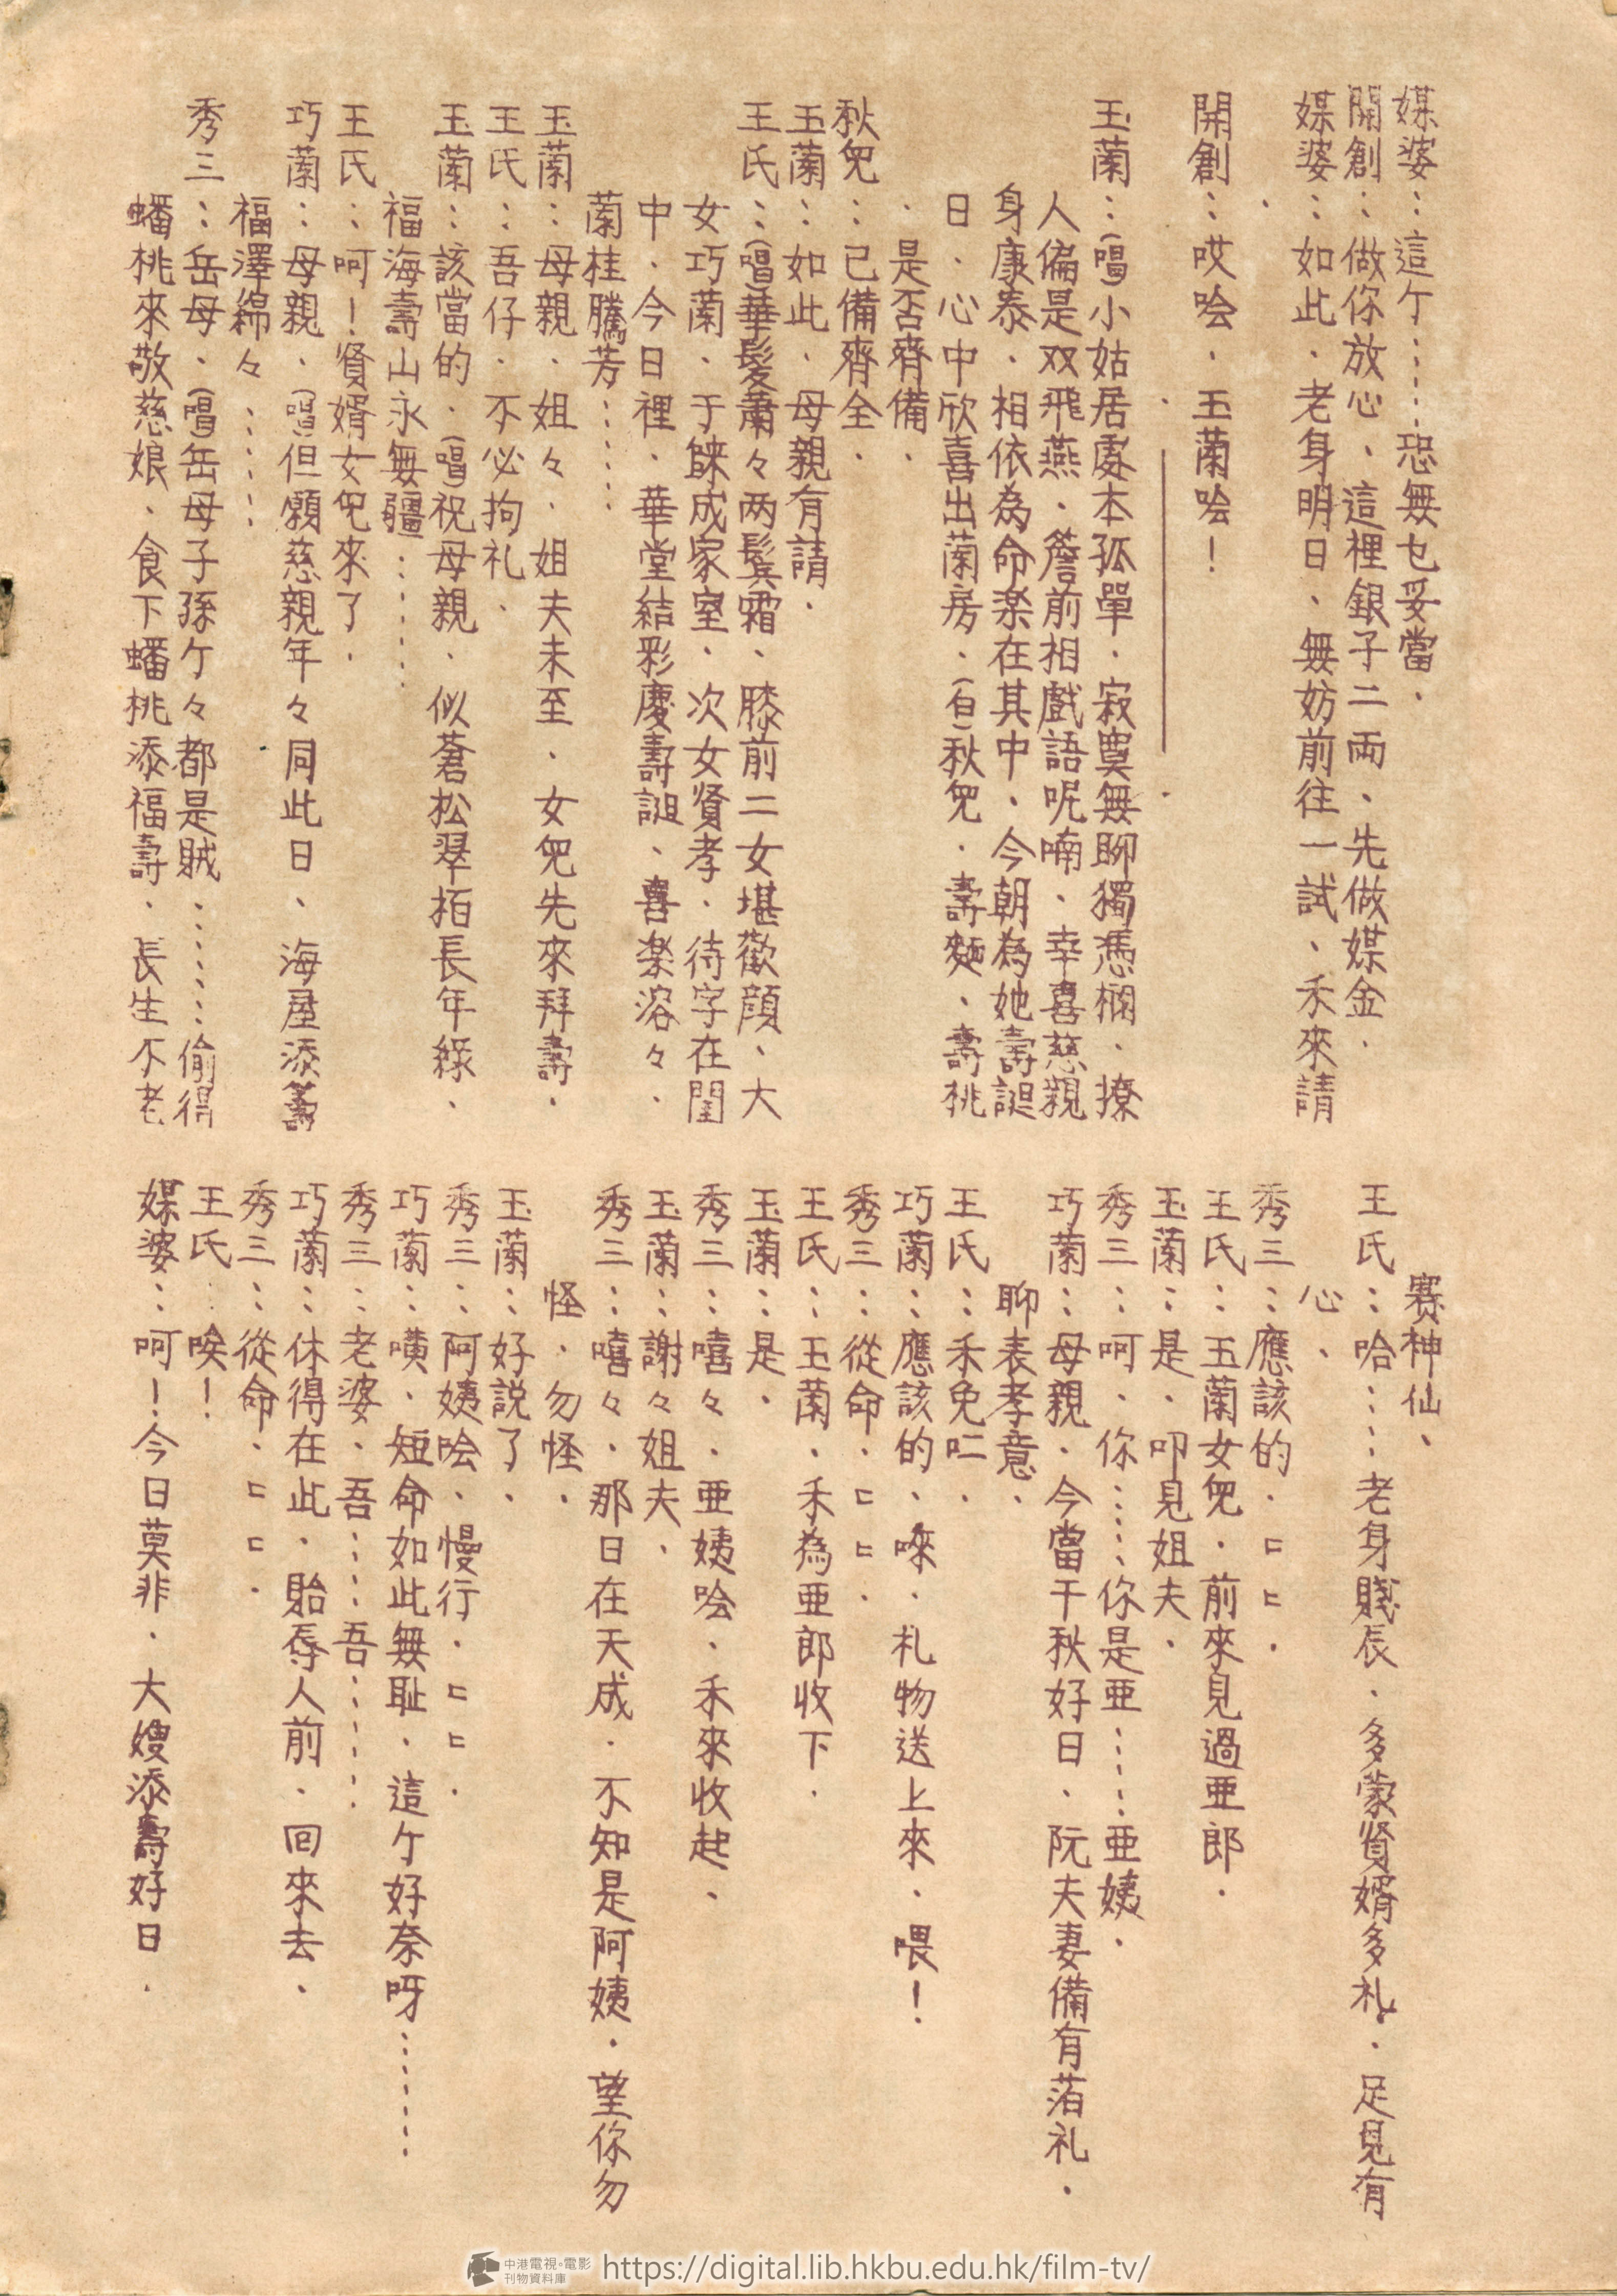 媒婆：這亇……恐無乜妥當．
開創：做你放心、這裡銀子二両、先做媒金．
媒婆：如此．老身明日、無妨前往一試、禾來請
．
開創：哎唅．玉蘭唅！
玉蘭：(唱)小姑居處本孤單．寂寞無聊獨憑欄．撩
人偏是双飛燕．簷前相戲語呢喃、幸喜慈親
身康泰．相依為命楽在其中、今朝為她壽誕
日．心中欣喜出蘭房．(白)秋兒．壽麵、壽桃
．是否齊備．
秋兒：已備齊全．
玉蘭：如此．母親有請．
王氏：(唱)華髪蕭々両鬂霜、膝前二女堪歡顔、大
女巧蘭．于歸成家室、次女賢孝．待字在閨
中．今日裡．華堂結彩慶壽誕、喜楽溶々．
蘭桂騰芳……
玉蘭：母親．姐々．姐夫未至．女兒先來拜壽．
王氏：吾仔．不必拘礼．
玉蘭：該當的．(唱)祝母親．似蒼松翠栢長年綠、
福海壽山永無疆……
王氏：呵！賢婿女兒來了．
巧蘭：母親．(唱)但願慈親年々同此日、海屋添籌
福澤綿々……
秀三：岳母．(唱)岳母子孫亇々都是賊……偷得
蟠桃來敬慈娘、食下蟠桃添福壽．長生不老
賽神仙、
王氏：哈……老身賤辰．多蒙賢婿多礼．足見有
心、
秀三：應該的．ㄷㄷ．
王氏：玉蘭女兒．前來見過亜郎．
玉蘭：是．叩見姐夫．
秀三：呵．你……你是亜……亜姨．
巧蘭：母親．今當千秋好日．阮夫妻備有薄礼．
聊表孝意．
王氏：禾免吂．
巧蘭：應該的、唻．札物送上來．喂！
秀三：從命．ㄷㄷ．
王氏：玉蘭．禾為亜郎收下．
玉蘭：是．
秀三：嘻々．亜姨唅．禾來收起、
玉蘭：謝々姐夫．
秀三：嘻々．那日在天成．不知是阿姨．望你勿
怪．勿怪．
玉蘭：好説了．
秀三：阿姨唅．慢行．ㄷㄷ．
巧蘭：嘪．短命如此無耻．這亇好奈呀………
秀三：老婆．吾……吾……
巧蘭：休得在此．貽辱人前．回來去．
秀三：從命．ㄷㄷ．
王氏：唉！
媒婆：呵！今日莫非．大嫂添壽好日．
中港電視・電影
刊物資料庫
https://digital.lib.hkbu.edu.hk/film-tv/